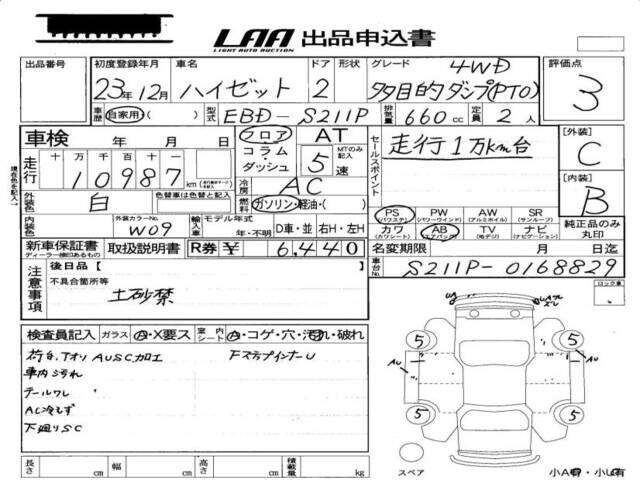 LAA 出品申込書
LIGHT AUTO AUCTION
出品番号
初度登録年月 車名 ドア 形状 グレード 評価点
23年12月 ハイゼット 2 4WD 多目的ダンプ(PTO) 3
車歴 自家用・( ) 型式 EBD-S211P 排気量 660cc 定員 2人
車検 年 月 日
フロア AT
コラム・ダッシュ 5速 MTのみ記入
セールスポイント
走行1万km台
[外装] C
[内装] B
走行 十万千百十一
10987 km
冷房 AC
現在色を記入
外装色 白 色替車は色替と記入
燃料 ガソリン・軽油・( )
内装色 外装カラーNo. W09
輸入車 モデル年式 年・不明 D車・並 右H・左H
PS (パワステ) PW (パワーウインド) AW (アルミホイル) SR (サンルーフ)
カワ (カワシート) AB (エアバッグ) TV (地デジ) ナビ (ナビゲーション)
純正品のみ丸印
新車保証書 ディーラー捺印あるもの
取扱説明書 R券 ¥ 6,440
名変期限 月 日迄
車台No. S211P-0168829
注意事項
後日品【 】
不具合箇所等
土砂禁
ロック車
検査員記入 ガラス Ⓐ・X要ス 室内シート Ⓐ・コゲ・穴・汚れ・破れ
荷台、アオリ AUSC加工
車内汚れ
テールワレ
AC冷えず
下廻りSC
FステップインナーU
5 5
5 5
AU
AU
長さ cm 幅 cm 高さ cm 積載量 kg
スペア
小A有・小U有